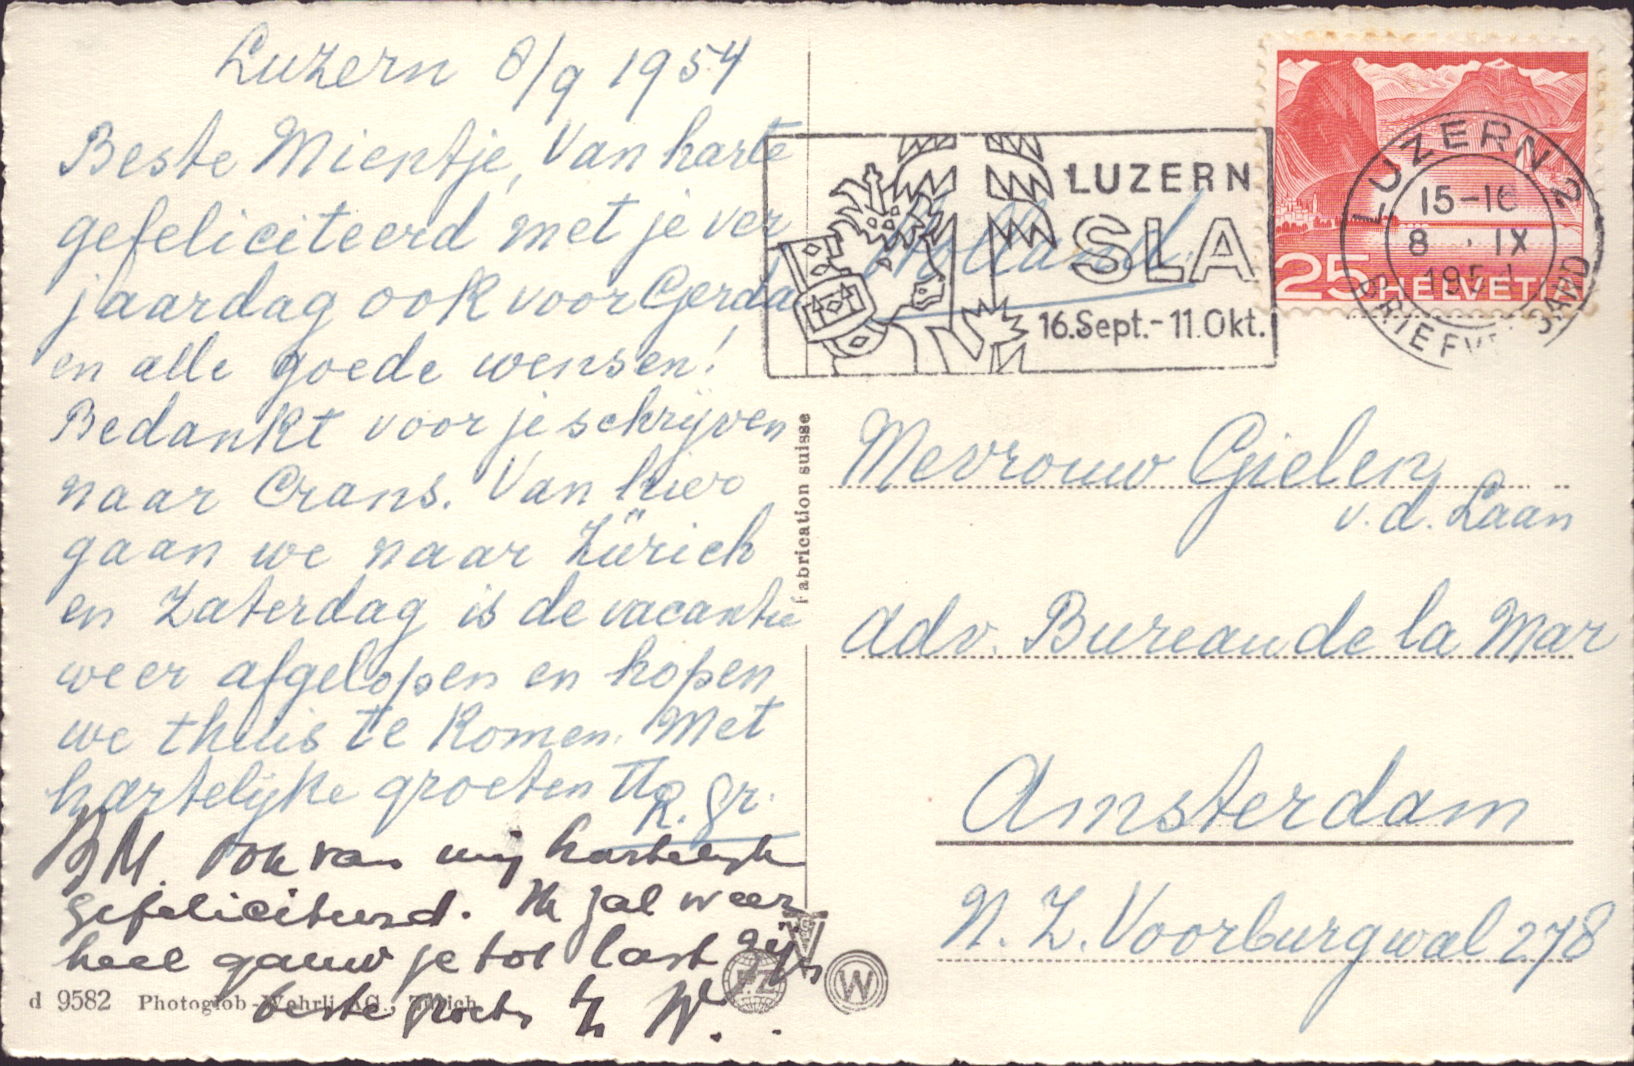 Luzern 8/9 1954
Beste Mientje, Van harte
gefeliciteerd met je ver
jaardag ook voor Gerda
en alle goede wensen!
Bedankt voor je schrijven
naar Crans. Van hier
gaan we naar Zürich
en Zaterdag is de vacantie
weer afgelopen en hopen
we thuis te komen. Met
hartelijke groeten
R. Gr.
B M. ook van mij hartelijk
gefeliciteerd. Ik zal weer
heel gauw je tot last zijn
beste groeten W.
d 9582 Photoglob-Wehrli AG., Zürich
Fabrication suisse
LUZERN
SLA
16.Sept.-11.Okt.
Holland
25 HELVETIA
LUZERN 2
15-16
8. IX
1954
BRIEFVERSAND
Mevrouw Gielen
v.d. Laan
Adv. Bureau de la Mar
Amsterdam
N. Z. Voorburgwal 278
PZ
W